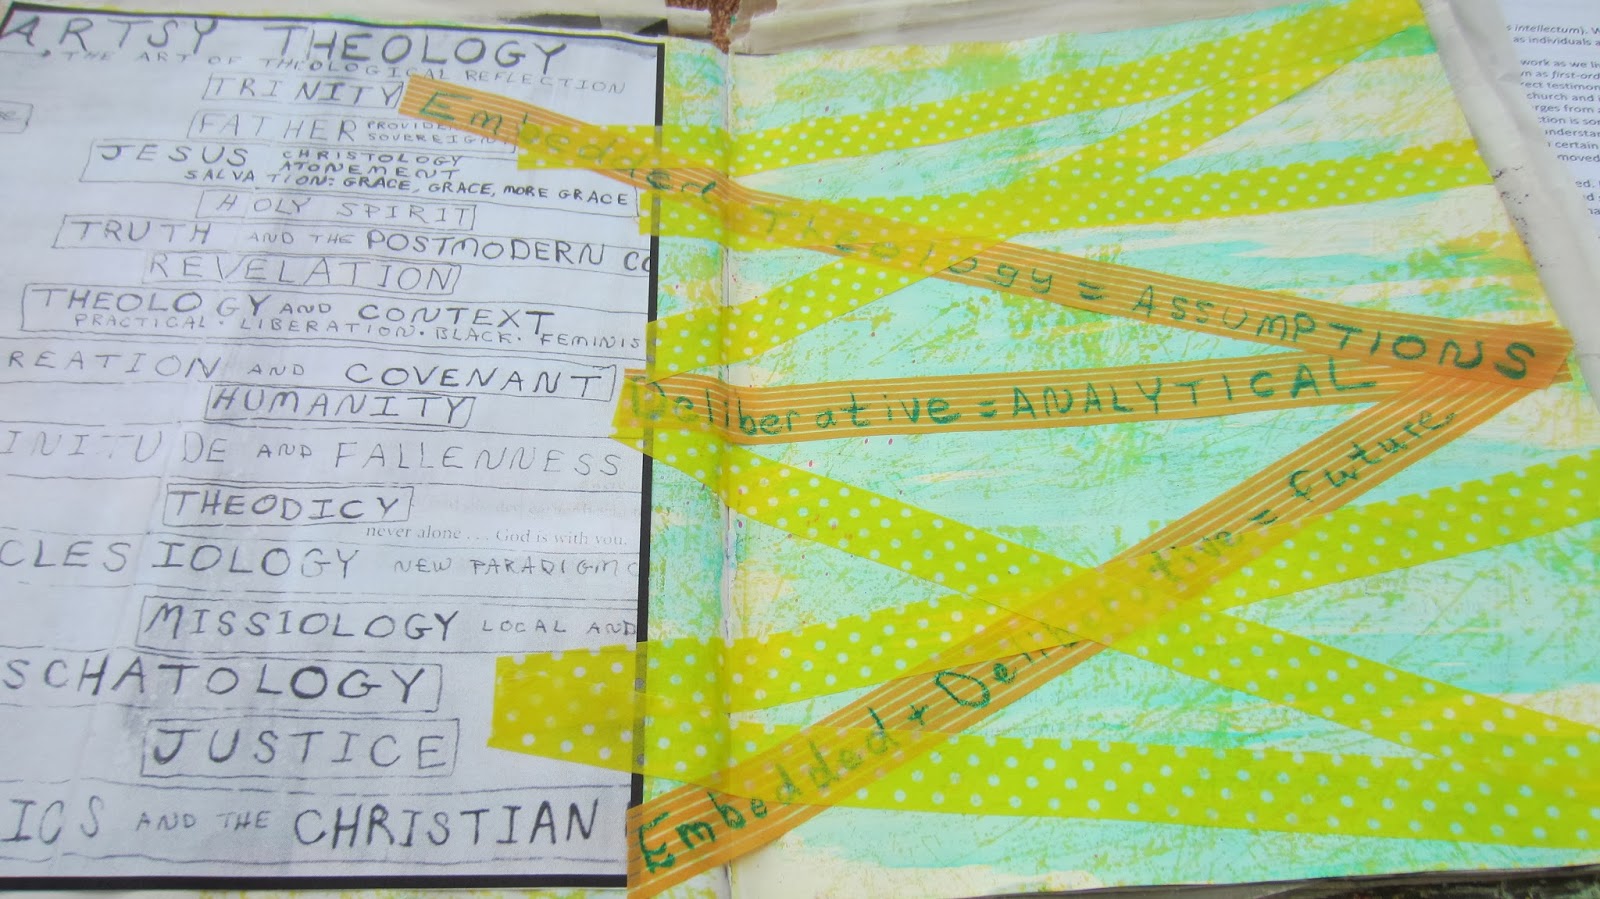 ARTSY THEOLOGY
THE ART OF THEOLOGICAL REFLECTION
TRINITY
FATHER PROVIDE
SOVEREIGN
JESUS CHRISTOLOGY
ATONEMENT
SALVATION: GRACE, GRACE, MORE GRACE
HOLY SPIRIT
TRUTH AND THE POSTMODERN CO
REVELATION
THEOLOGY AND CONTEXT
PRACTICAL · LIBERATION · BLACK · FEMINIS
REATION AND COVENANT
HUMANITY
INITUDE AND FALLENNESS
THEODICY
never alone . . . God is with you.
CLESIOLOGY NEW PARADIGM
MISSIOLOGY LOCAL AND
SCHATOLOGY
JUSTICE
ICS AND THE CHRISTIAN
Embedded Theology = ASSUMPTIONS
Deliberative = ANALYTICAL
Embedded + Deliberative = Future
s intellectum). W
as individuals a
work as we li
n as first-ord
rect testimon
church and i
rges from a
ction is so
understa
certain
moved
ed.